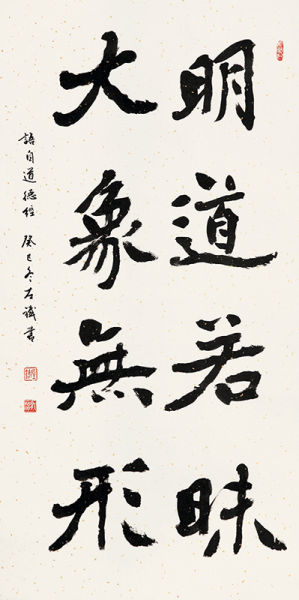 明道若昧
大象無形
語自道德經 癸巳冬 石識書